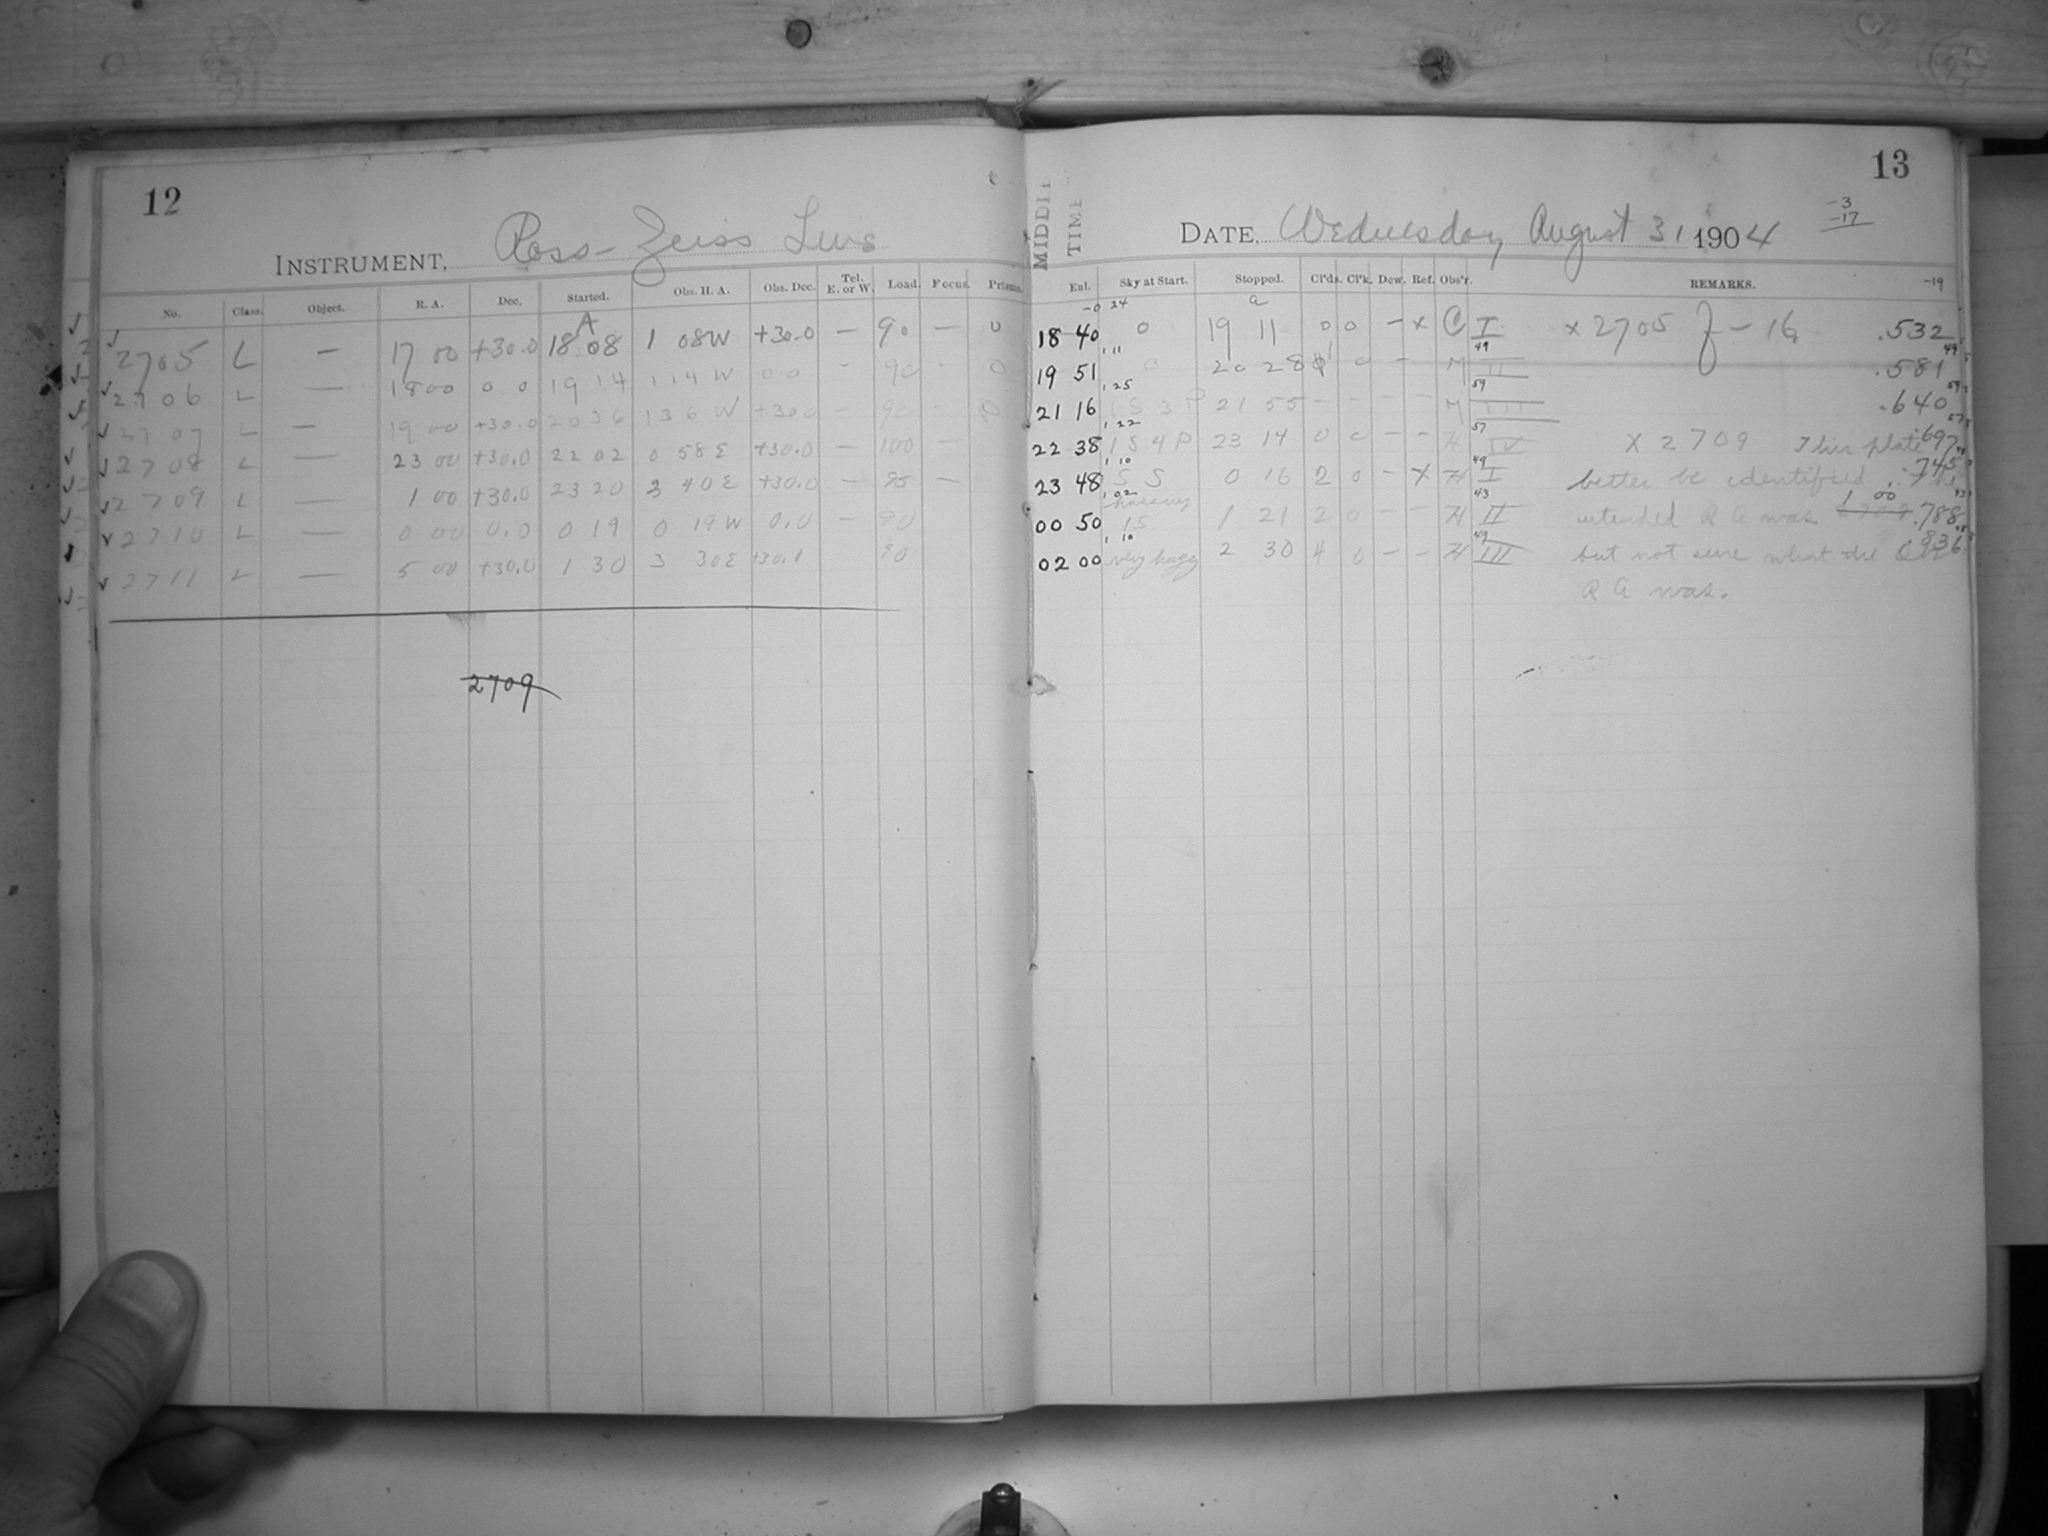 12
INSTRUMENT, Ross-Zeiss Lens
No. Class. Object. R. A. Dec. Started. Obs. H. A. Obs. Dec. Tel. E. or W. Load. Focus. Prisms.
A
2705 L — 17 00 +30.0 18 08 1 08W +30.0 — 90 — 0
2706 L — 18 00 0 0 19 14 1 14 W 0 0 - 90 - 0
2707 L — 19 00 +30.0 20 36 1 36 W +30.0 - 90 -
2708 L — 23 00 +30.0 22 02 0 58 E +30.0 — 100 —
2709 L — 1 00 +30.0 23 20 3 40 E +30.0 — 95 —
2710 L — 0 00 0.0 0 19 0 19 W 0.0 — 90
2711 L — 5 00 +30.0 1 30 3 30 E +30.1 90
2709
13
MIDDLE TIME
DATE, Wednesday August 31 1904
-3
-17
Ent. Sky at Start. Stopped. Cl'ds. Cl'k. Dew. Ref. Obs'r. REMARKS. -19
-0 24 a
18 40 0 19 11 0 0 - x C I x 2705 f - 16 .532
1 11 49 49
19 51 0 20 28 0 - - M II .581
1 25 59
21 16 1 S 3 P 21 55 - - - - M III .640
1 22 57
22 38 1 S 4 P 23 14 0 0 - - H IV x 2709 This plate .697
1 10 49
23 48 S S 0 16 2 0 - x H I better be identified. The .745
1 02 hazy 43
00 50 1 S 1 21 2 0 - - H II intended R A was 1 00 .788
1 10 49
02 00 very hazy 2 30 4 0 - - H III but not sure what the .836
R A was.